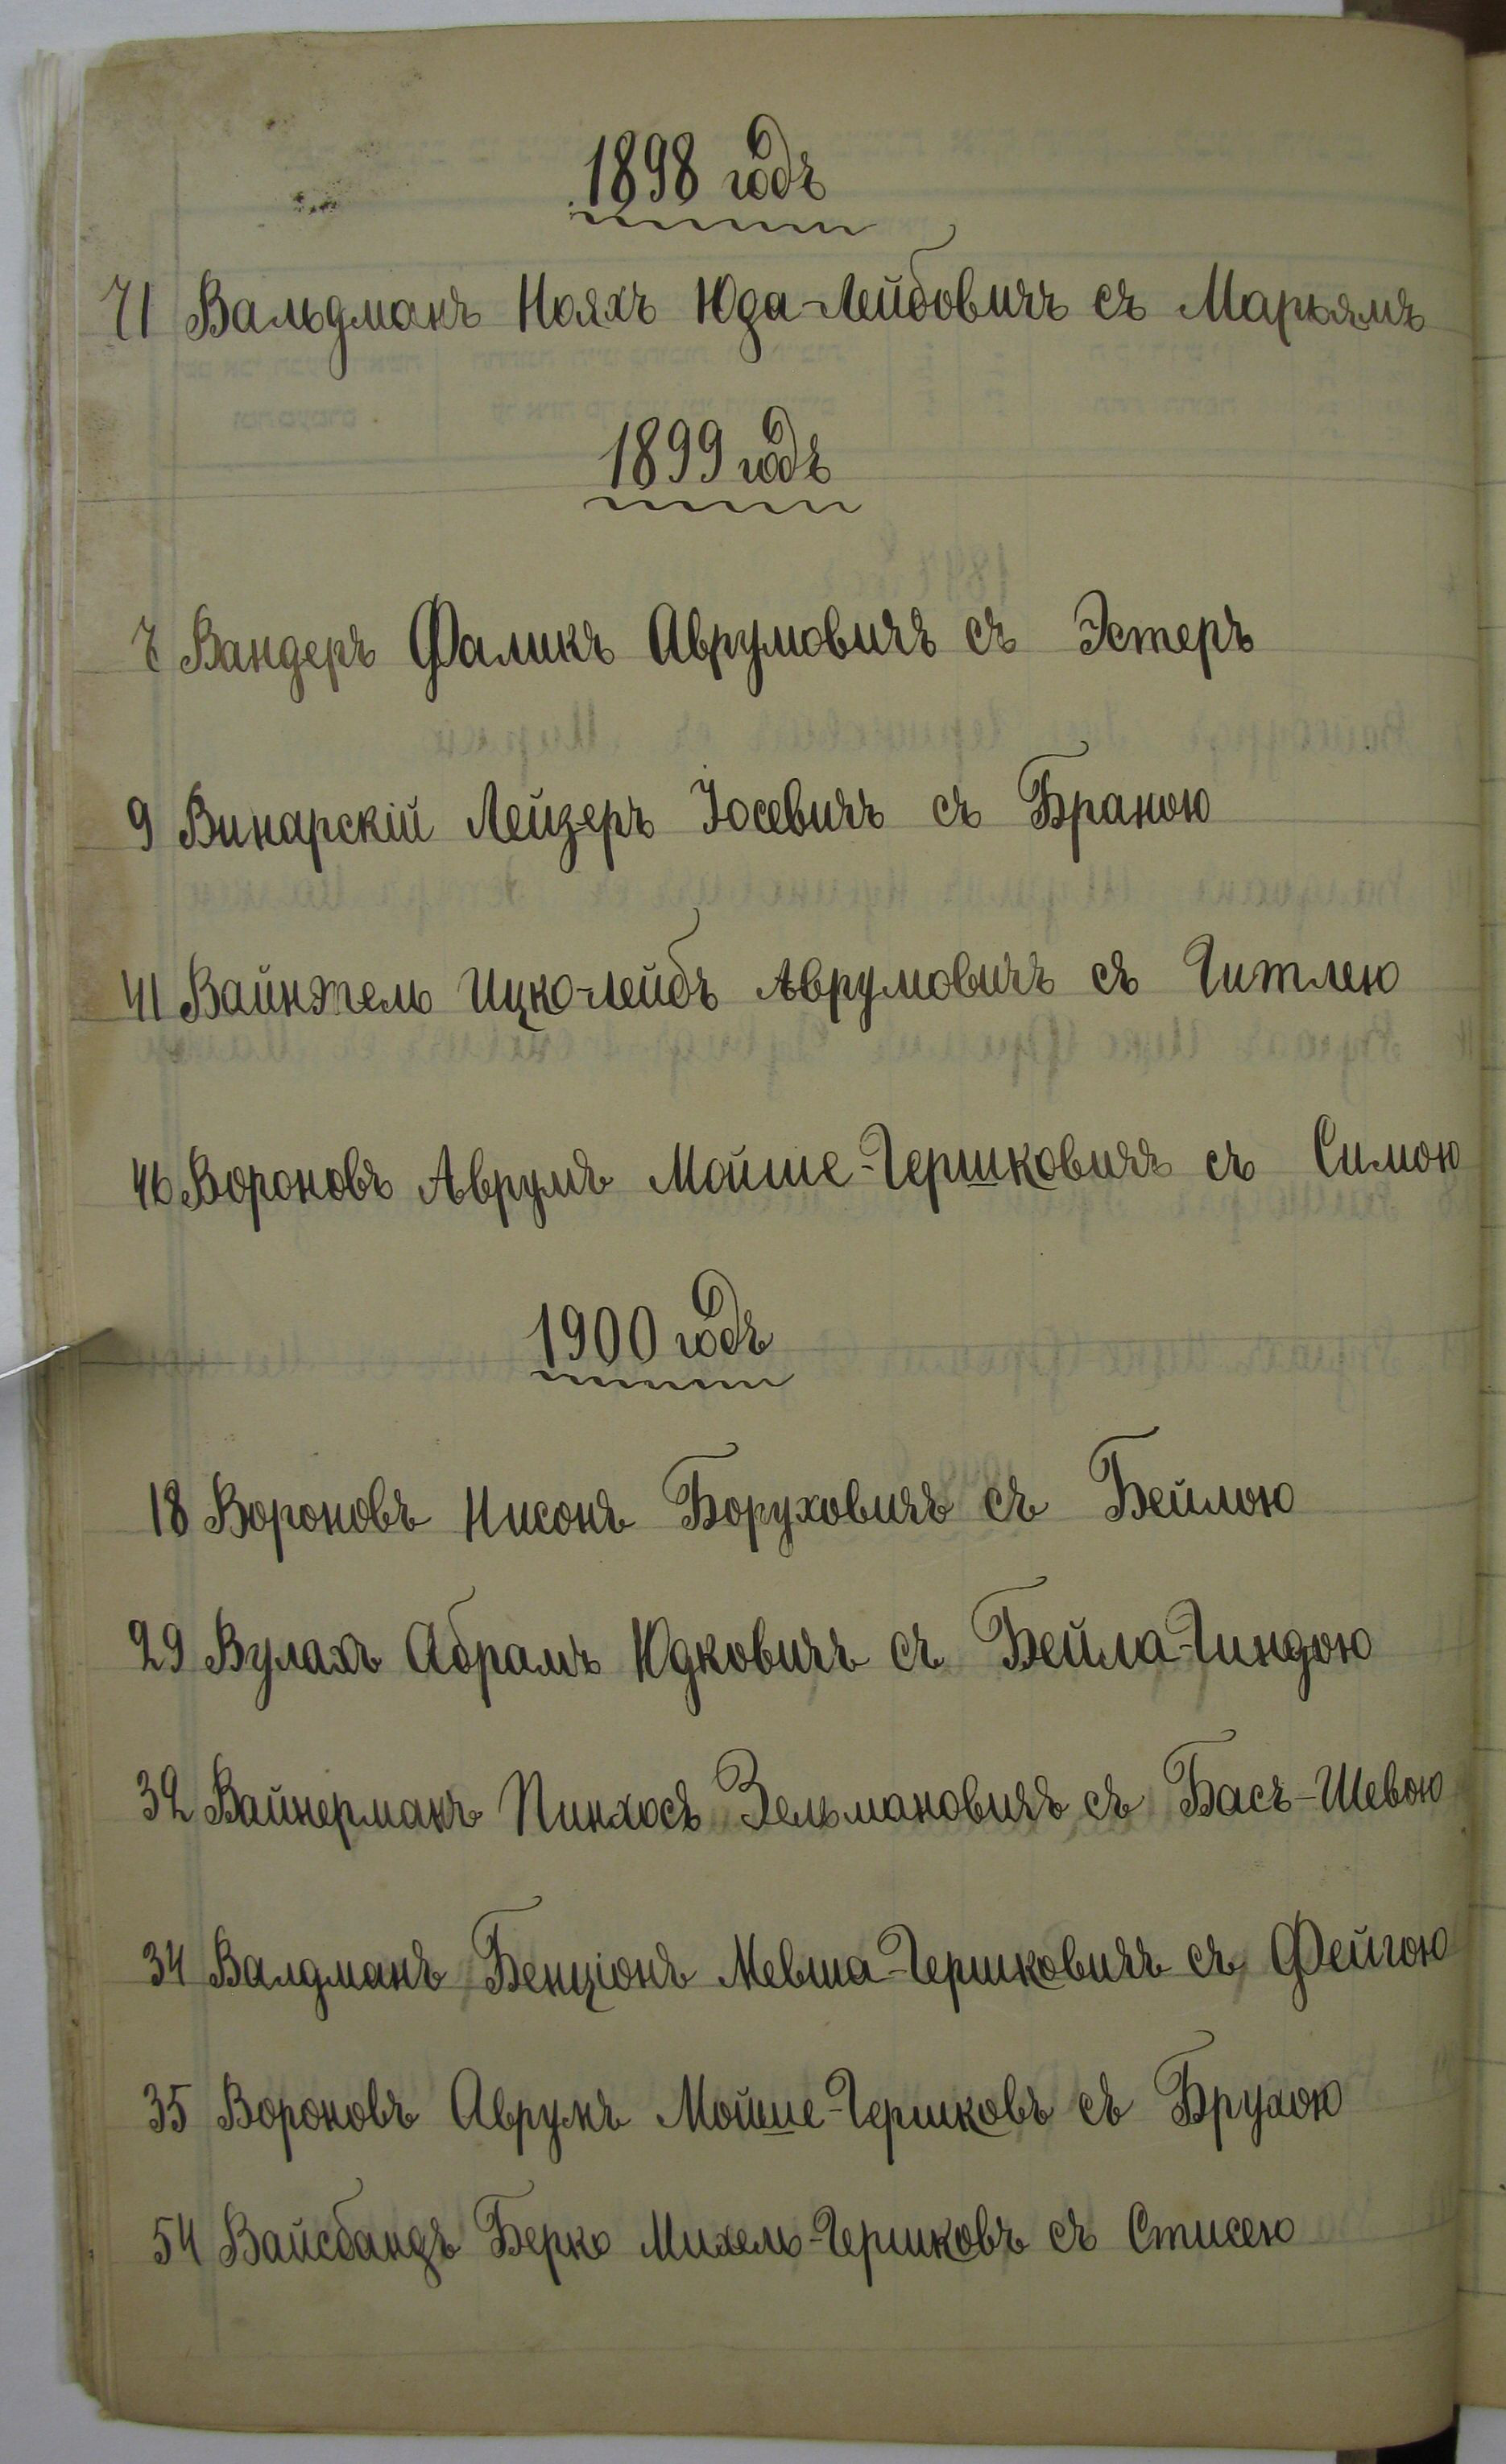 1898 годъ
71 Вальдманъ Нояхъ Юда-Лейбовичъ съ Марьямъ
1899 годъ
7 Вандеръ Фаликъ Аврумовичъ съ Эстеръ
9 Винарскій Лейзеръ Іосевичъ съ Браною
41 Вайнтель Ицко-лейбъ Аврумовичъ съ Гитлею
46 Вороновъ Аврумъ Мойше-Гершковичъ съ Симою
1900 годъ
18 Вороновъ Нисонъ Боруховичъ съ Бейлою
29 Вулахъ Абрамъ Юдковичъ съ Бейла-Гиндою
32 Вайнерманъ Пинхосъ Зельмановичъ съ Басъ-Шевою
34 Валдманъ Бенціонъ Мевша-Гершковичъ съ Фейгою
35 Вороновъ Аврумъ Мойше-Гершковъ съ Брухою
54 Вайсбандъ Берко Михель-Гершковъ съ Стисею